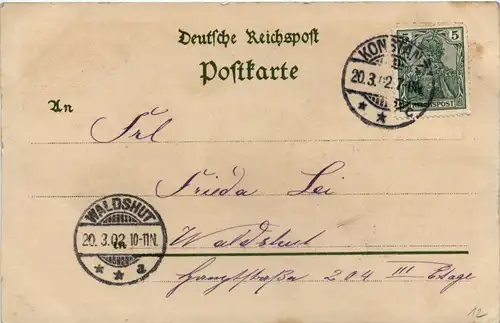 Deutsche Reichspost
Postkarte
5
REICHSPOST
KONSTANZ
20.3.02.7-8N.
* * c
An
Frl
Frieda Lei
in
Waldshut
Hauptstraße 204 III Etage
WALDSHUT
20.3.02.10-11N.
* * a
12